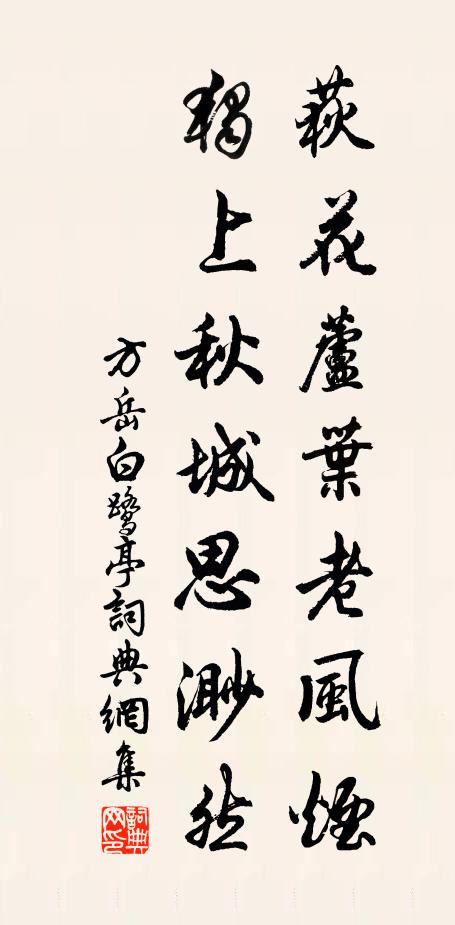 荻花蘆葉老風煙
獨上秋城思渺然
方岳白鷺亭詞典網集
詞典網印